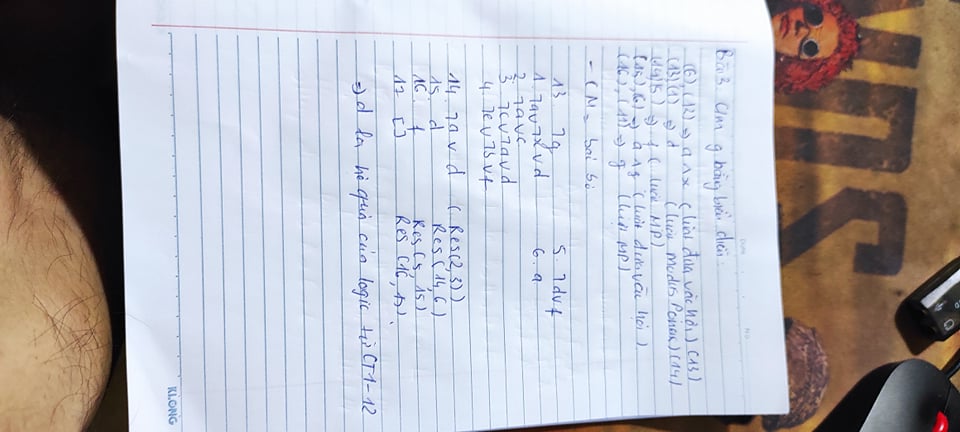 Bài 2. C/m g bằng biến diễn.
(6), (12) => a ∧ x (luật đưa vào hội) (13)
(13) (1) => d (luật Modus Ponen) (14)
(14) (5) => f (luật MP)
(15), (6) => a ∧ f (luật đưa vào hội)
(16), (11) => g (luật MP)
- CM = bác bỏ
13 7g 5. 7d v f
1. 7a v 7x v d 6. a
2. 7a v c
3. 7c v 7a v d
4. 7e v 7b v f
14. 7a v d (Res(2,3))
15. d Res(14,6)
16. f Res(5,15)
17 [] Res(16,13)
=> d là hệ quả của logic từ CT1-12
KLONG